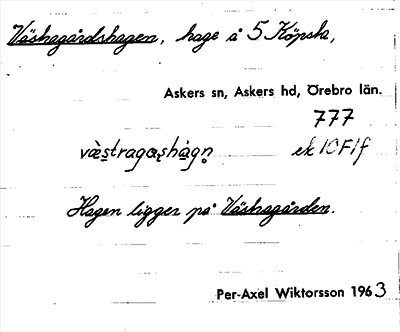 Västragårdshagen, hage å 5 Köpsta,
Askers sn, Askers hd, Örebro län.
777
væ̀stragɑʂhàgn̥
ek 10F1f
Hagen ligger på Västragården.
Per-Axel Wiktorsson 1963